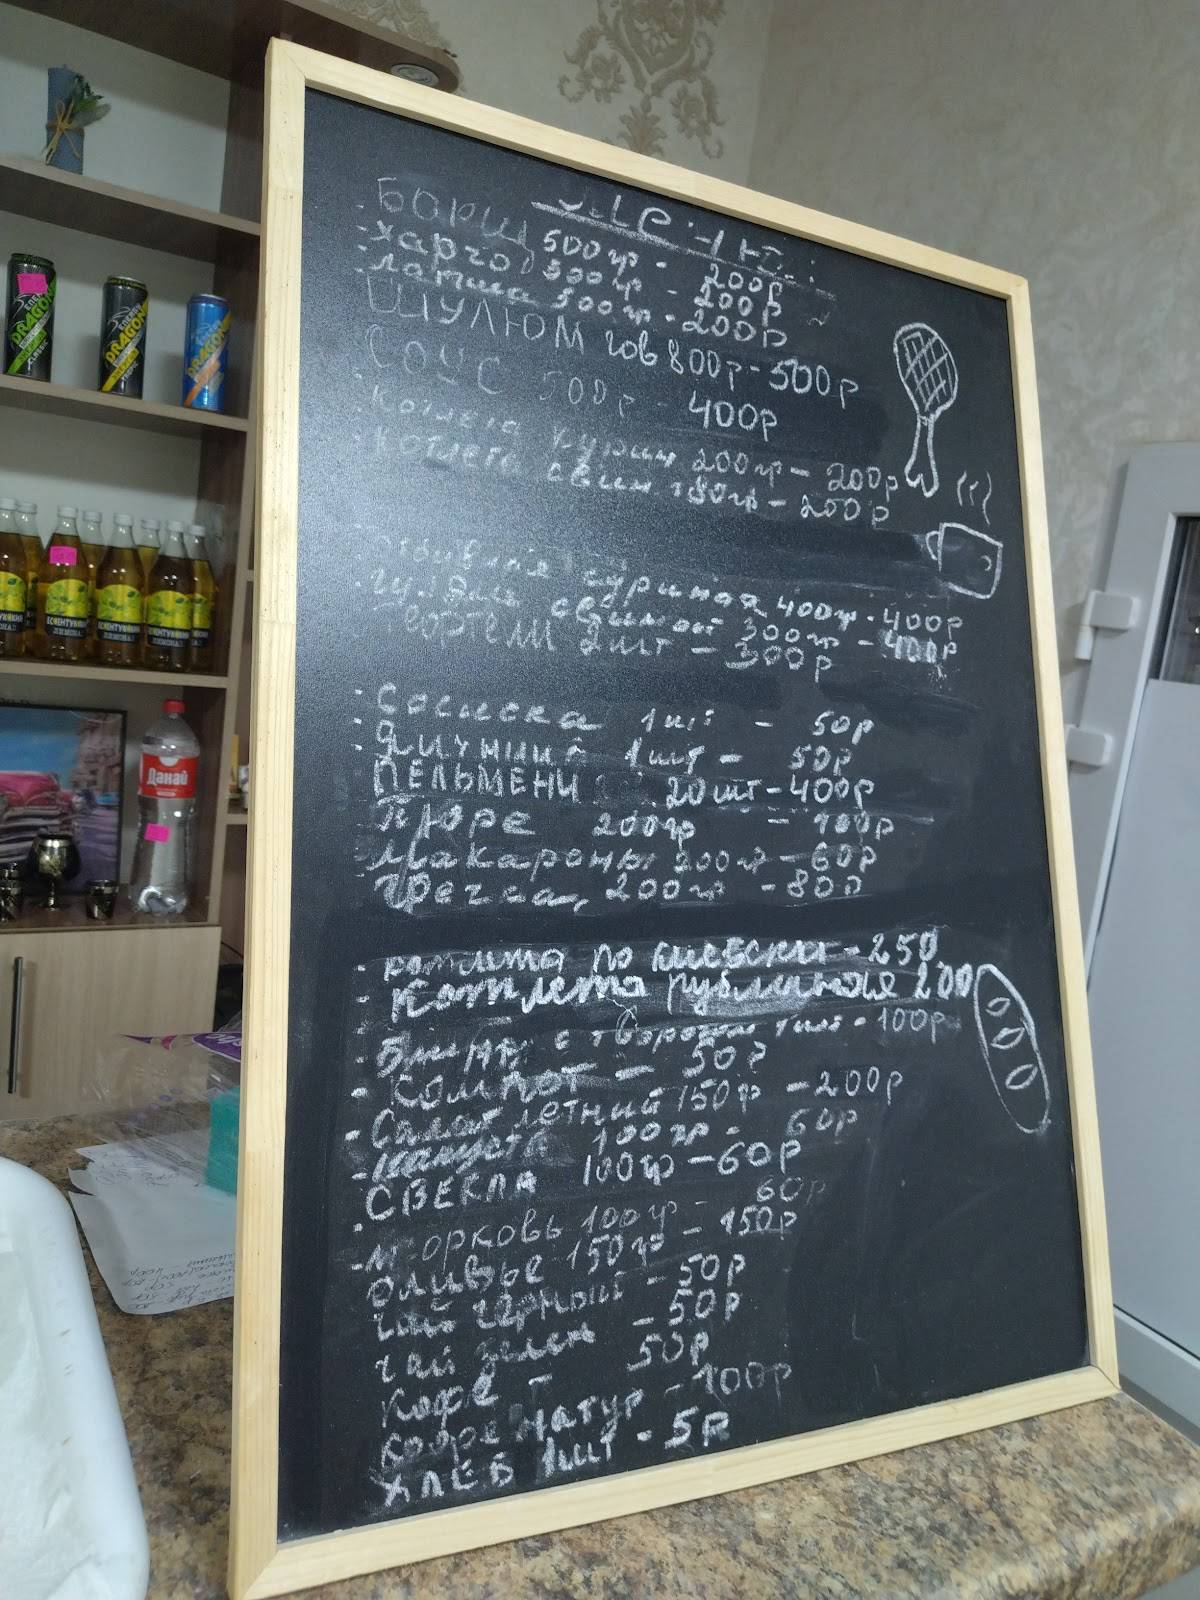 Борщ 500гр - 200р
Харчо 500гр - 200р
лапша 500гр - 200р
ШУЛЮМ гов 800р - 500р
СОУС 500р - 400р
Котлета курин 200гр - 200р
Котлета свин 180гр - 200р
куриная 400гр - 400р
гуляш свиной 300гр - 400р
2шт - 300р
Сосиска 1шт - 50р
Яичница 1шт - 50р
ПЕЛЬМЕНИ 20шт - 400р
Пюре 200гр - 100р
Макароны 200гр - 60р
Гречка, 200гр - 80р
- котлета по киевски - 250
- Котлета рубленная 200
- Блины с творогом 1шт - 100р
- КОМПОТ - 50р
- Салат летний 150р - 200р
- капуста 100гр - 60р
СВЕКЛА 100гр - 60р
- морковь 100гр - 60р
Оливье 150гр - 150р
Чай чёрный - 50р
чай зелен - 50р
Кофе - 50р
кофе натур - 100р
ХЛЕБ 1шт - 5р
DRAGON
DRAGON
DRAGON
ЛИМОНАД
Данай